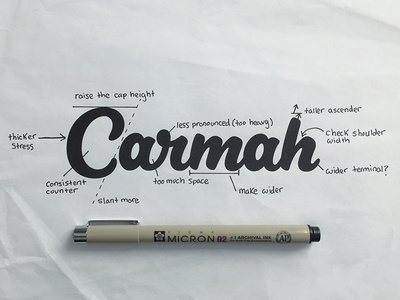 raise the cap height
taller ascender
less pronounced (too heavy)
thicker
stress
Carmah
check shoulder
width
consistent
counter
too much space
wider terminal?
make wider
slant more
SIGMA
MICRON 02
ARCHIVAL INK
AP